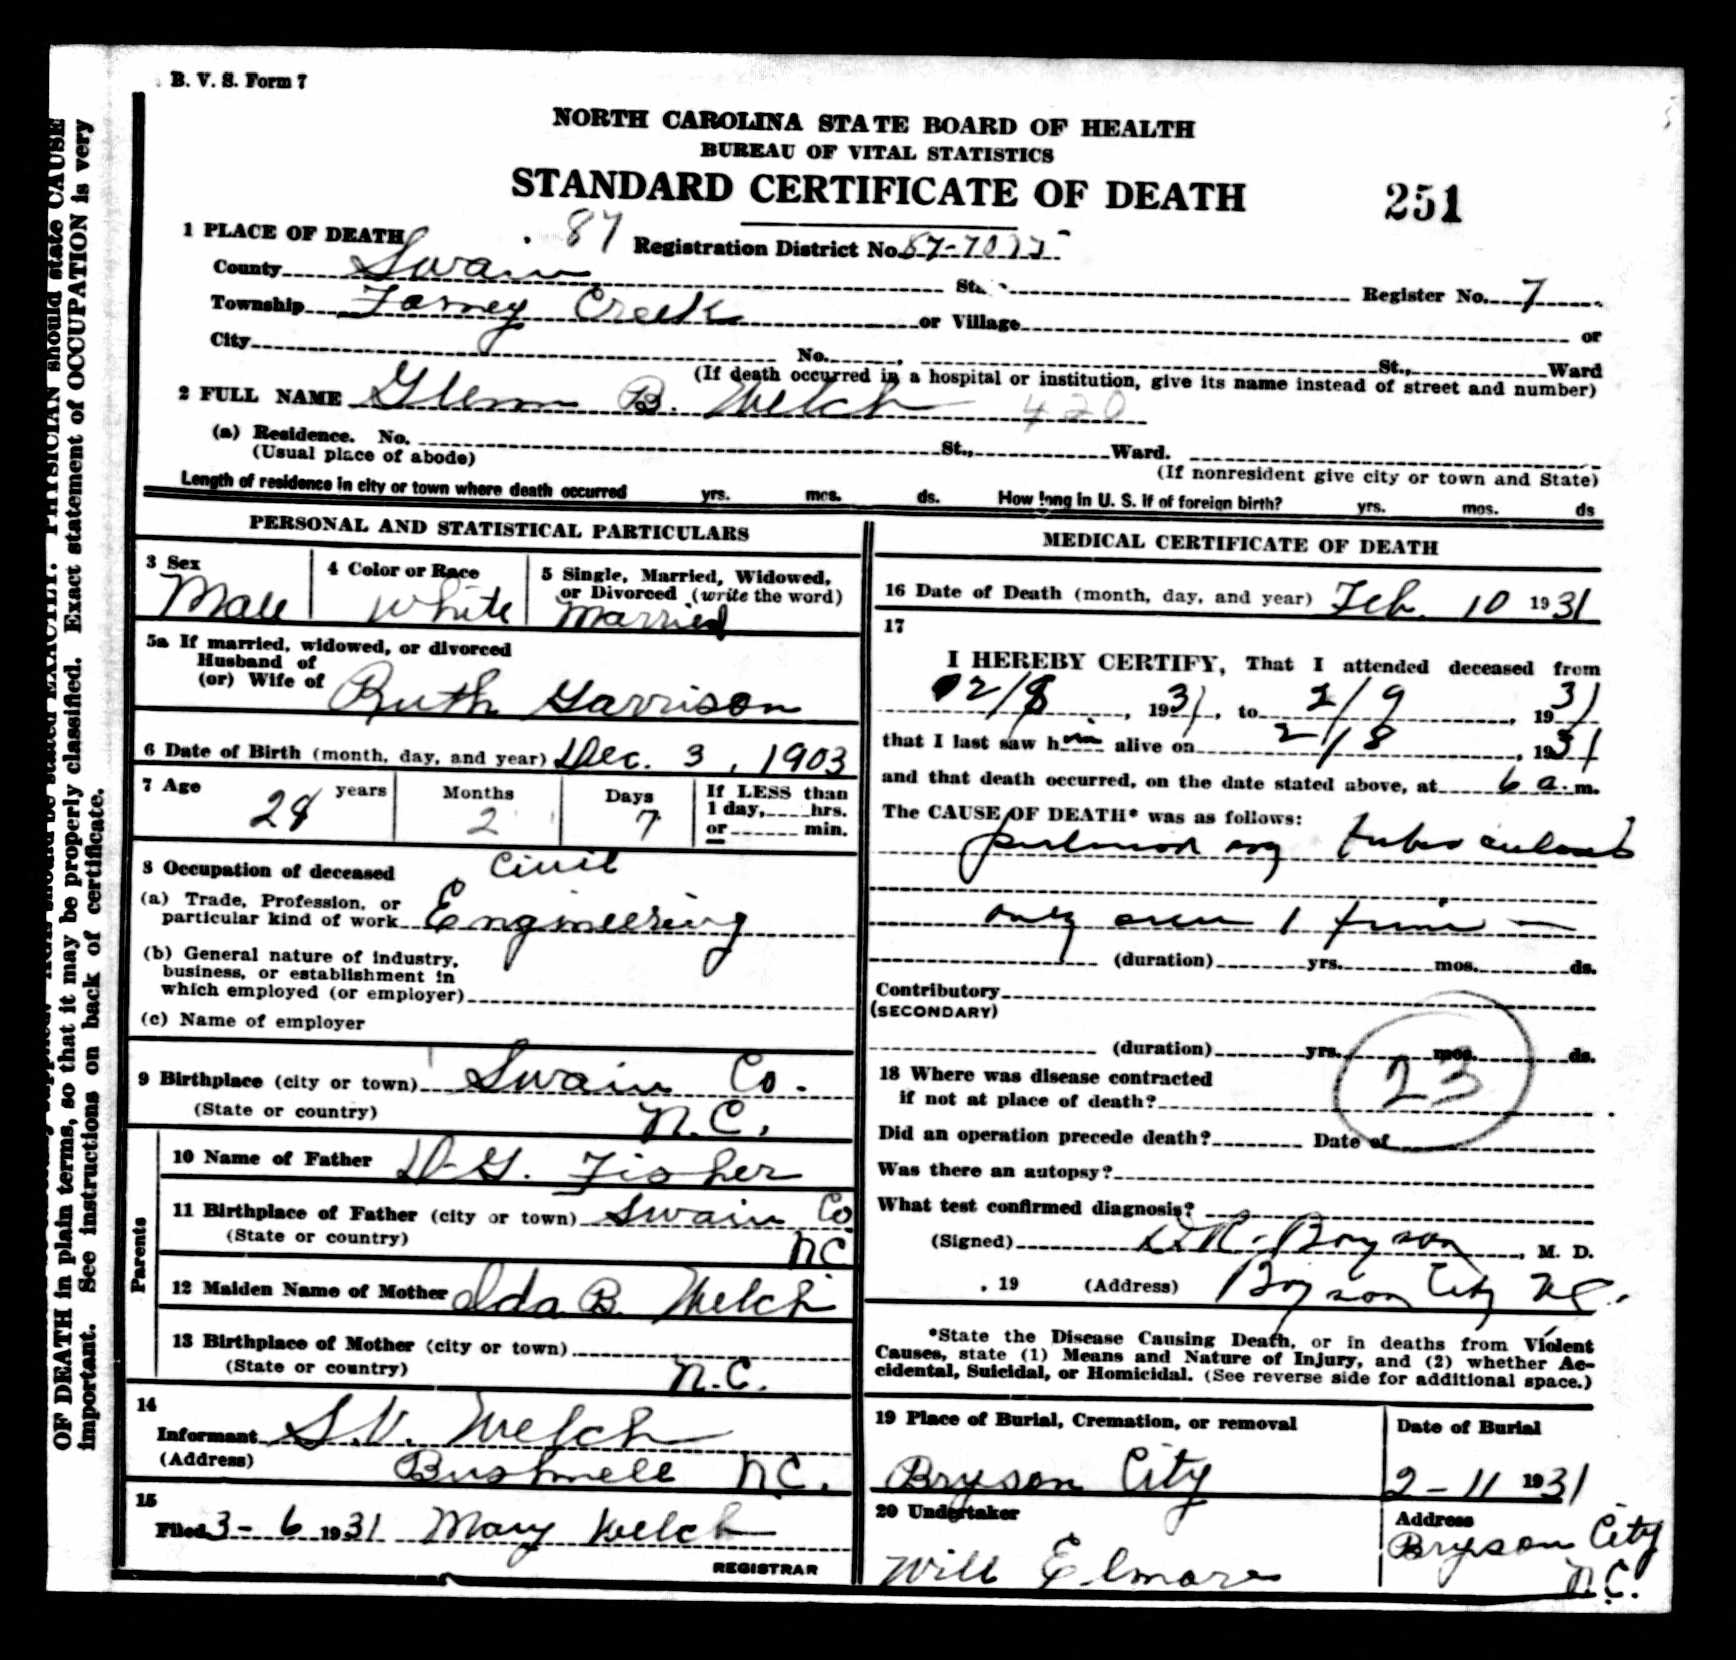 B. V. S. Form 7
NORTH CAROLINA STATE BOARD OF HEALTH
BUREAU OF VITAL STATISTICS
STANDARD CERTIFICATE OF DEATH 251
1 PLACE OF DEATH . 87 Registration District No.
County Swain State Register No. 7
Township Forney Creek or Village or
City No. , St., Ward
(If death occurred in a hospital or institution, give its name instead of street and number)
2 FULL NAME Glenn B. Welch 420
(a) Residence. No. St., Ward.
(Usual place of abode) (If nonresident give city or town and State)
Length of residence in city or town where death occurred yrs. mos. ds. How long in U. S. if of foreign birth? yrs. mos. ds
PERSONAL AND STATISTICAL PARTICULARS
3 Sex 4 Color or Race 5 Single, Married, Widowed,
or Divorced (write the word)
Male White Married
5a If married, widowed, or divorced
Husband of
(or) Wife of Ruth Garrison
6 Date of Birth (month, day, and year) Dec. 3, 1903
7 Age years Months Days If LESS than
1 day, hrs.
or min.
28 2 7
8 Occupation of deceased Civil
(a) Trade, Profession, or
particular kind of work Engineering
(b) General nature of industry,
business, or establishment in
which employed (or employer)
(c) Name of employer
9 Birthplace (city or town) Swain Co.
(State or country) N.C.
Parents
10 Name of Father D. G. Fisher
11 Birthplace of Father (city or town) Swain Co
(State or country) NC
12 Maiden Name of Mother Ida B. Welch
13 Birthplace of Mother (city or town)
(State or country) N.C.
14
Informant S.V. Welch
(Address) Bushnell N.C.
15
Filed 3-6 1931 Mary Welch
REGISTRAR
MEDICAL CERTIFICATE OF DEATH
16 Date of Death (month, day, and year) Feb. 10 1931
17
I HEREBY CERTIFY, That I attended deceased from
2/8, 1931, to 2/9, 1931
that I last saw him alive on 2/8, 1931
and that death occurred, on the date stated above, at 6 a. m.
The CAUSE OF DEATH* was as follows:
pulmonary tuberculosis
only seen 1 time —
(duration) yrs. mos. ds.
Contributory
(SECONDARY)
(duration) yrs. mos. ds.
23
18 Where was disease contracted
if not at place of death?
Did an operation precede death? Date of
Was there an autopsy?
What test confirmed diagnosis?
(Signed) D.R. Bryson, M. D.
, 19 (Address) Bryson City NC.
*State the Disease Causing Death, or in deaths from Violent
Causes, state (1) Means and Nature of Injury, and (2) whether Ac-
cidental, Suicidal, or Homicidal. (See reverse side for additional space.)
19 Place of Burial, Cremation, or removal Date of Burial
Bryson City 2-11 1931
20 Undertaker Address
Will Elmore Bryson City
N.C.
OF DEATH in plain terms, so that it may be properly classified. Exact statement of OCCUPATION is very
important. See instructions on back of certificate.
PHYSICIAN should state CAUSE